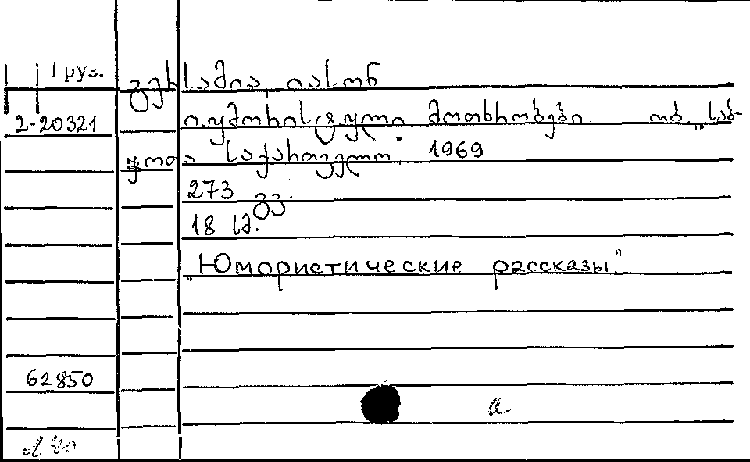 Груз.
გერსამია, იასონ
2-20321 იუმორისტული მოთხრობები. თბ. „საბ-
ჭოთა საქართველო", 1969
273 გვ.
18 სმ.
"Юмористические рассказы"
62850
a.